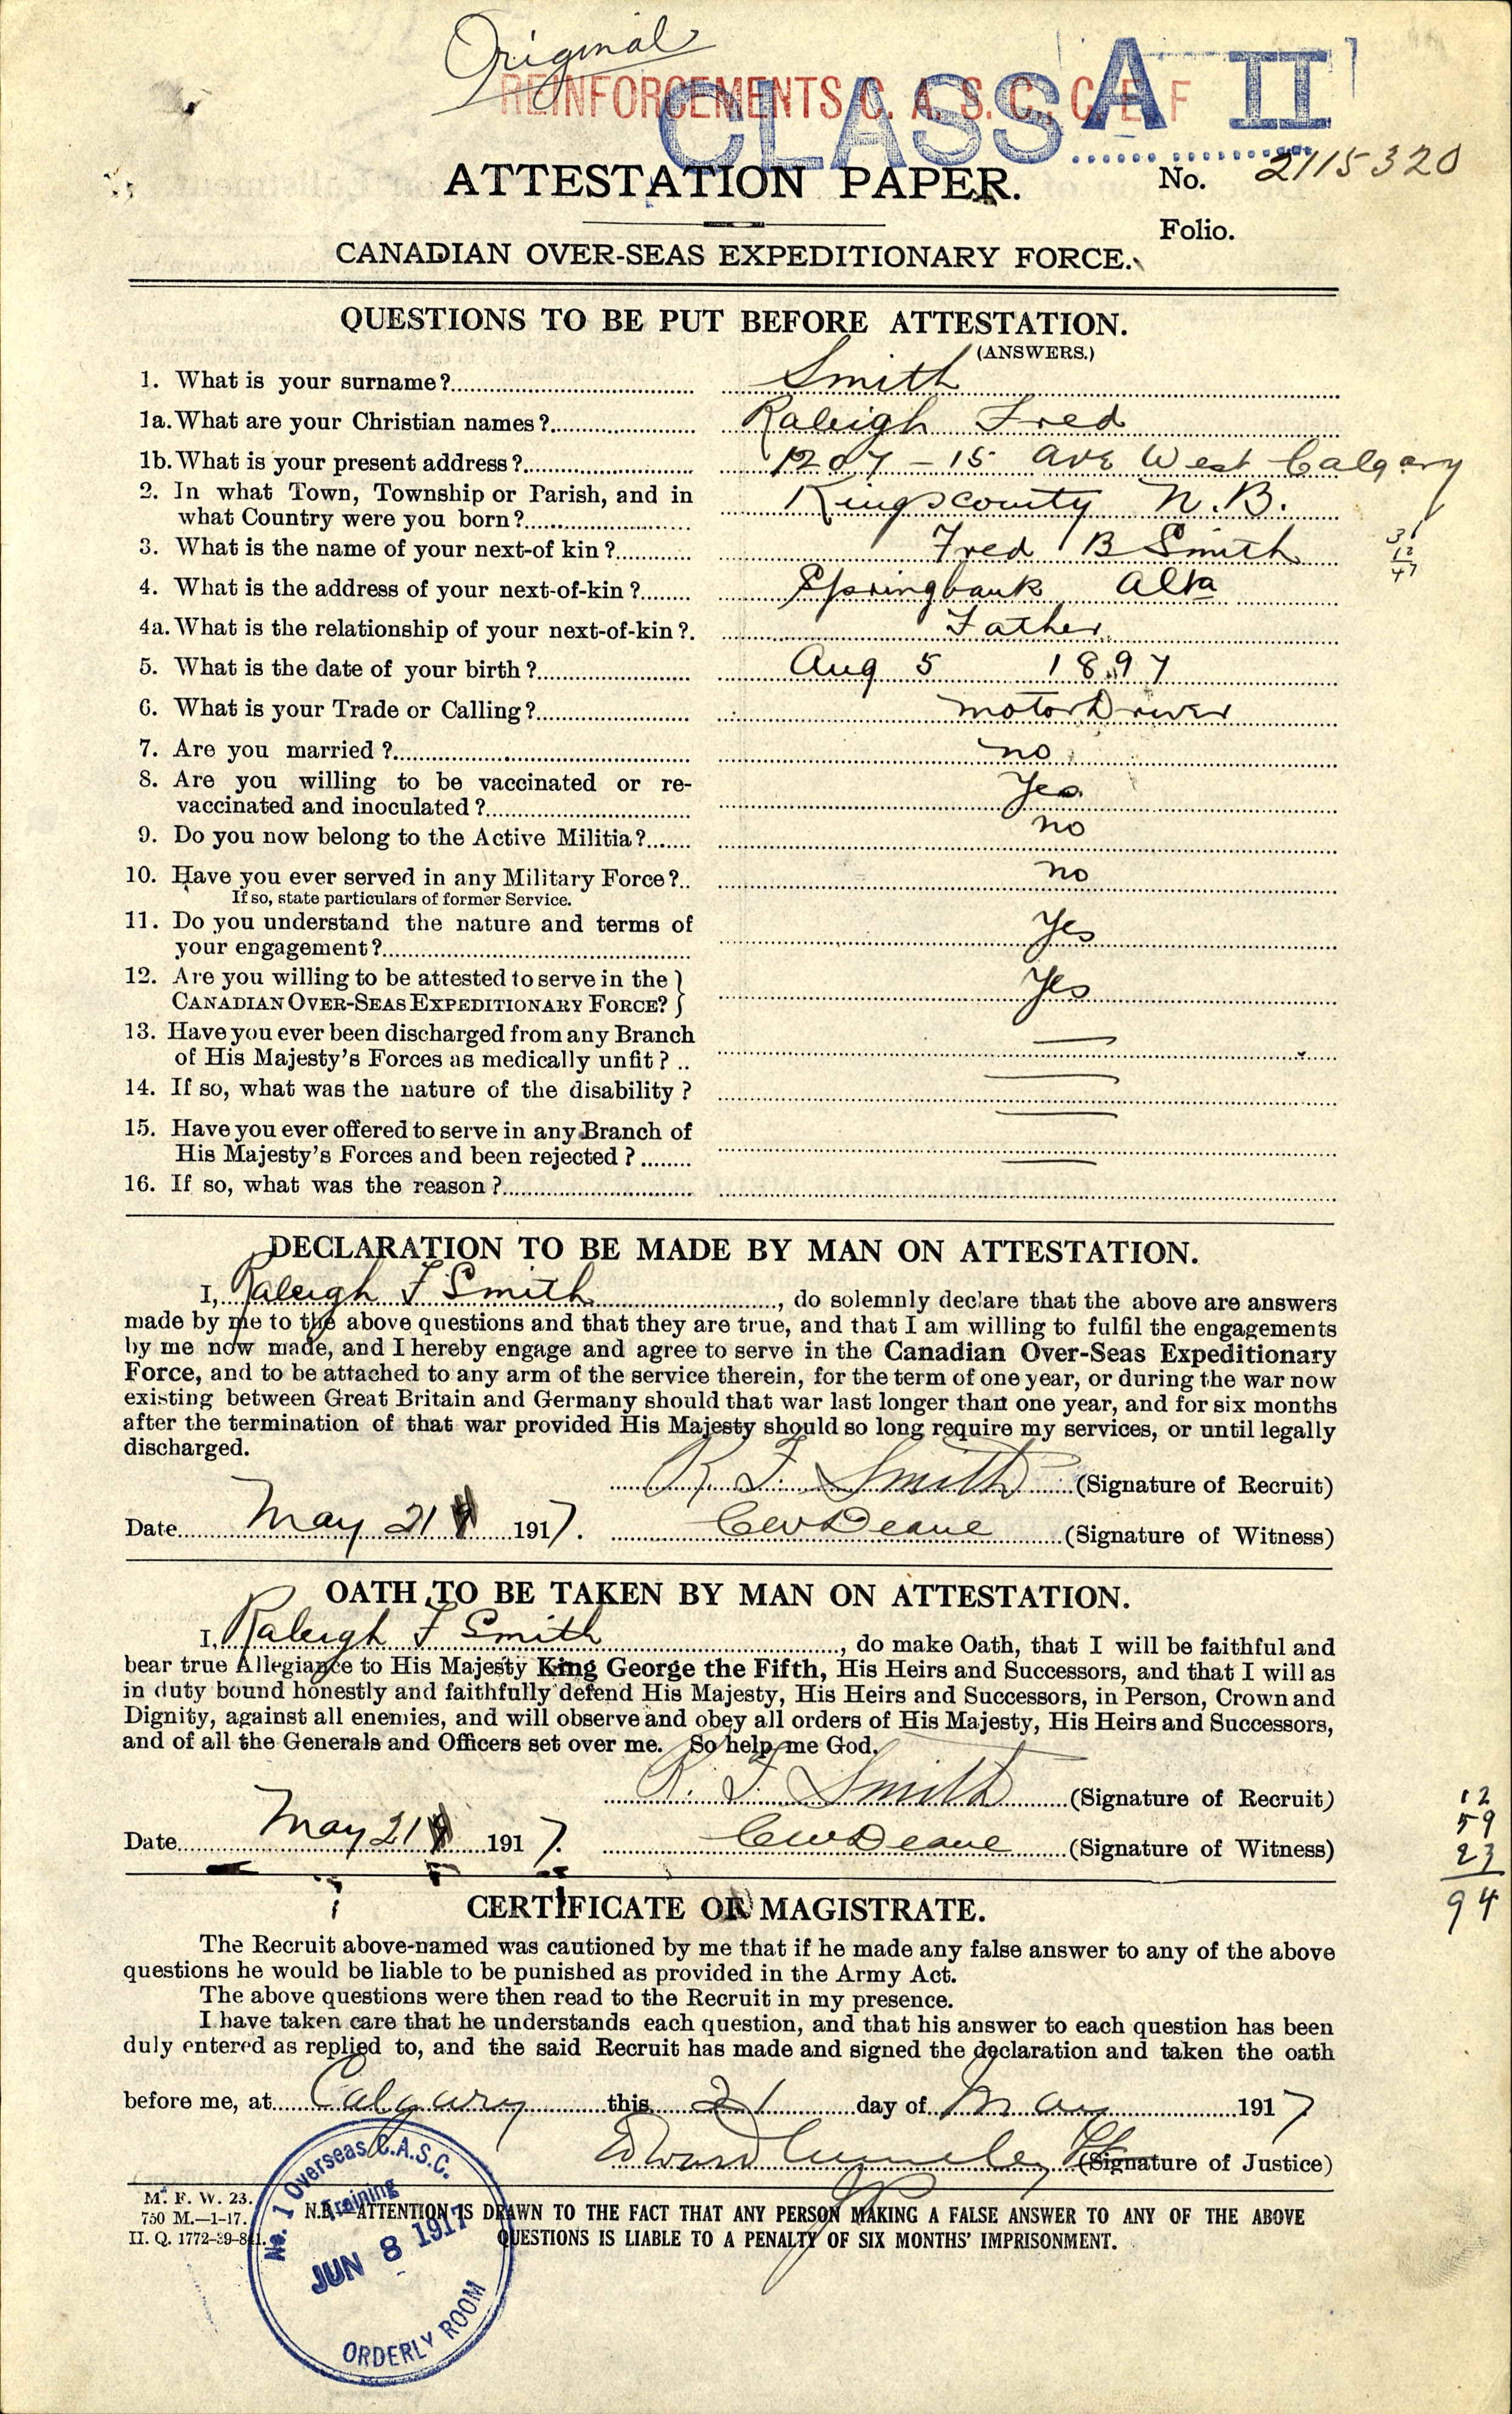 Original
REINFORCEMENTS C. A. S. C., C. E. F
CLASS A II
ATTESTATION PAPER.
No. 2115320
Folio.
CANADIAN OVER-SEAS EXPEDITIONARY FORCE.
QUESTIONS TO BE PUT BEFORE ATTESTATION.
(ANSWERS.)
1. What is your surname?........ Smith
1a. What are your Christian names?........ Raleigh Fred
1b. What is your present address?........ 1207 - 15 Ave West Calgary
2. In what Town, Township or Parish, and in
what Country were you born?........ Kingscounty N.B.
3. What is the name of your next-of kin?........ Fred B Smith
31
12
47
4. What is the address of your next-of-kin?........ Springbank Alta
4a. What is the relationship of your next-of-kin?. Father
5. What is the date of your birth?........ Aug 5 1897
6. What is your Trade or Calling?........ Motor Driver
7. Are you married?........ no
8. Are you willing to be vaccinated or re-
vaccinated and inoculated?........ Yes
9. Do you now belong to the Active Militia?....... no
10. Have you ever served in any Military Force?.. no
If so, state particulars of former Service.
11. Do you understand the nature and terms of
your engagement?........ Yes
12. Are you willing to be attested to serve in the }
CANADIAN OVER-SEAS EXPEDITIONARY FORCE? } Yes
13. Have you ever been discharged from any Branch
of His Majesty's Forces as medically unfit? ..
14. If so, what was the nature of the disability?
15. Have you ever offered to serve in any Branch of
His Majesty's Forces and been rejected?........
16. If so, what was the reason?........
DECLARATION TO BE MADE BY MAN ON ATTESTATION.
I, Raleigh F Smith, do solemnly declare that the above are answers
made by me to the above questions and that they are true, and that I am willing to fulfil the engagements
by me now made, and I hereby engage and agree to serve in the Canadian Over-Seas Expeditionary
Force, and to be attached to any arm of the service therein, for the term of one year, or during the war now
existing between Great Britain and Germany should that war last longer than one year, and for six months
after the termination of that war provided His Majesty should so long require my services, or until legally
discharged.
R. F. Smith (Signature of Recruit)
Date May 21 1917. CW Deane (Signature of Witness)
OATH TO BE TAKEN BY MAN ON ATTESTATION.
I, Raleigh F Smith, do make Oath, that I will be faithful and
bear true Allegiance to His Majesty King George the Fifth, His Heirs and Successors, and that I will as
in duty bound honestly and faithfully defend His Majesty, His Heirs and Successors, in Person, Crown and
Dignity, against all enemies, and will observe and obey all orders of His Majesty, His Heirs and Successors,
and of all the Generals and Officers set over me. So help me God.
R. F. Smith (Signature of Recruit)
Date May 21 1917. CW Deane (Signature of Witness)
12
59
23
94
CERTIFICATE OF MAGISTRATE.
The Recruit above-named was cautioned by me that if he made any false answer to any of the above
questions he would be liable to be punished as provided in the Army Act.
The above questions were then read to the Recruit in my presence.
I have taken care that he understands each question, and that his answer to each question has been
duly entered as replied to, and the said Recruit has made and signed the declaration and taken the oath
before me, at Calgary this 21 day of May 1917
Edward (Signature of Justice)
JP
M. F. W. 23.
750 M.—1-17.
H. Q. 1772-39-841.
N.B.—ATTENTION IS DRAWN TO THE FACT THAT ANY PERSON MAKING A FALSE ANSWER TO ANY OF THE ABOVE
QUESTIONS IS LIABLE TO A PENALTY OF SIX MONTHS' IMPRISONMENT.
No. 1 Overseas C.A.S.C.
Training
JUN 8 1917
ORDERLY ROOM